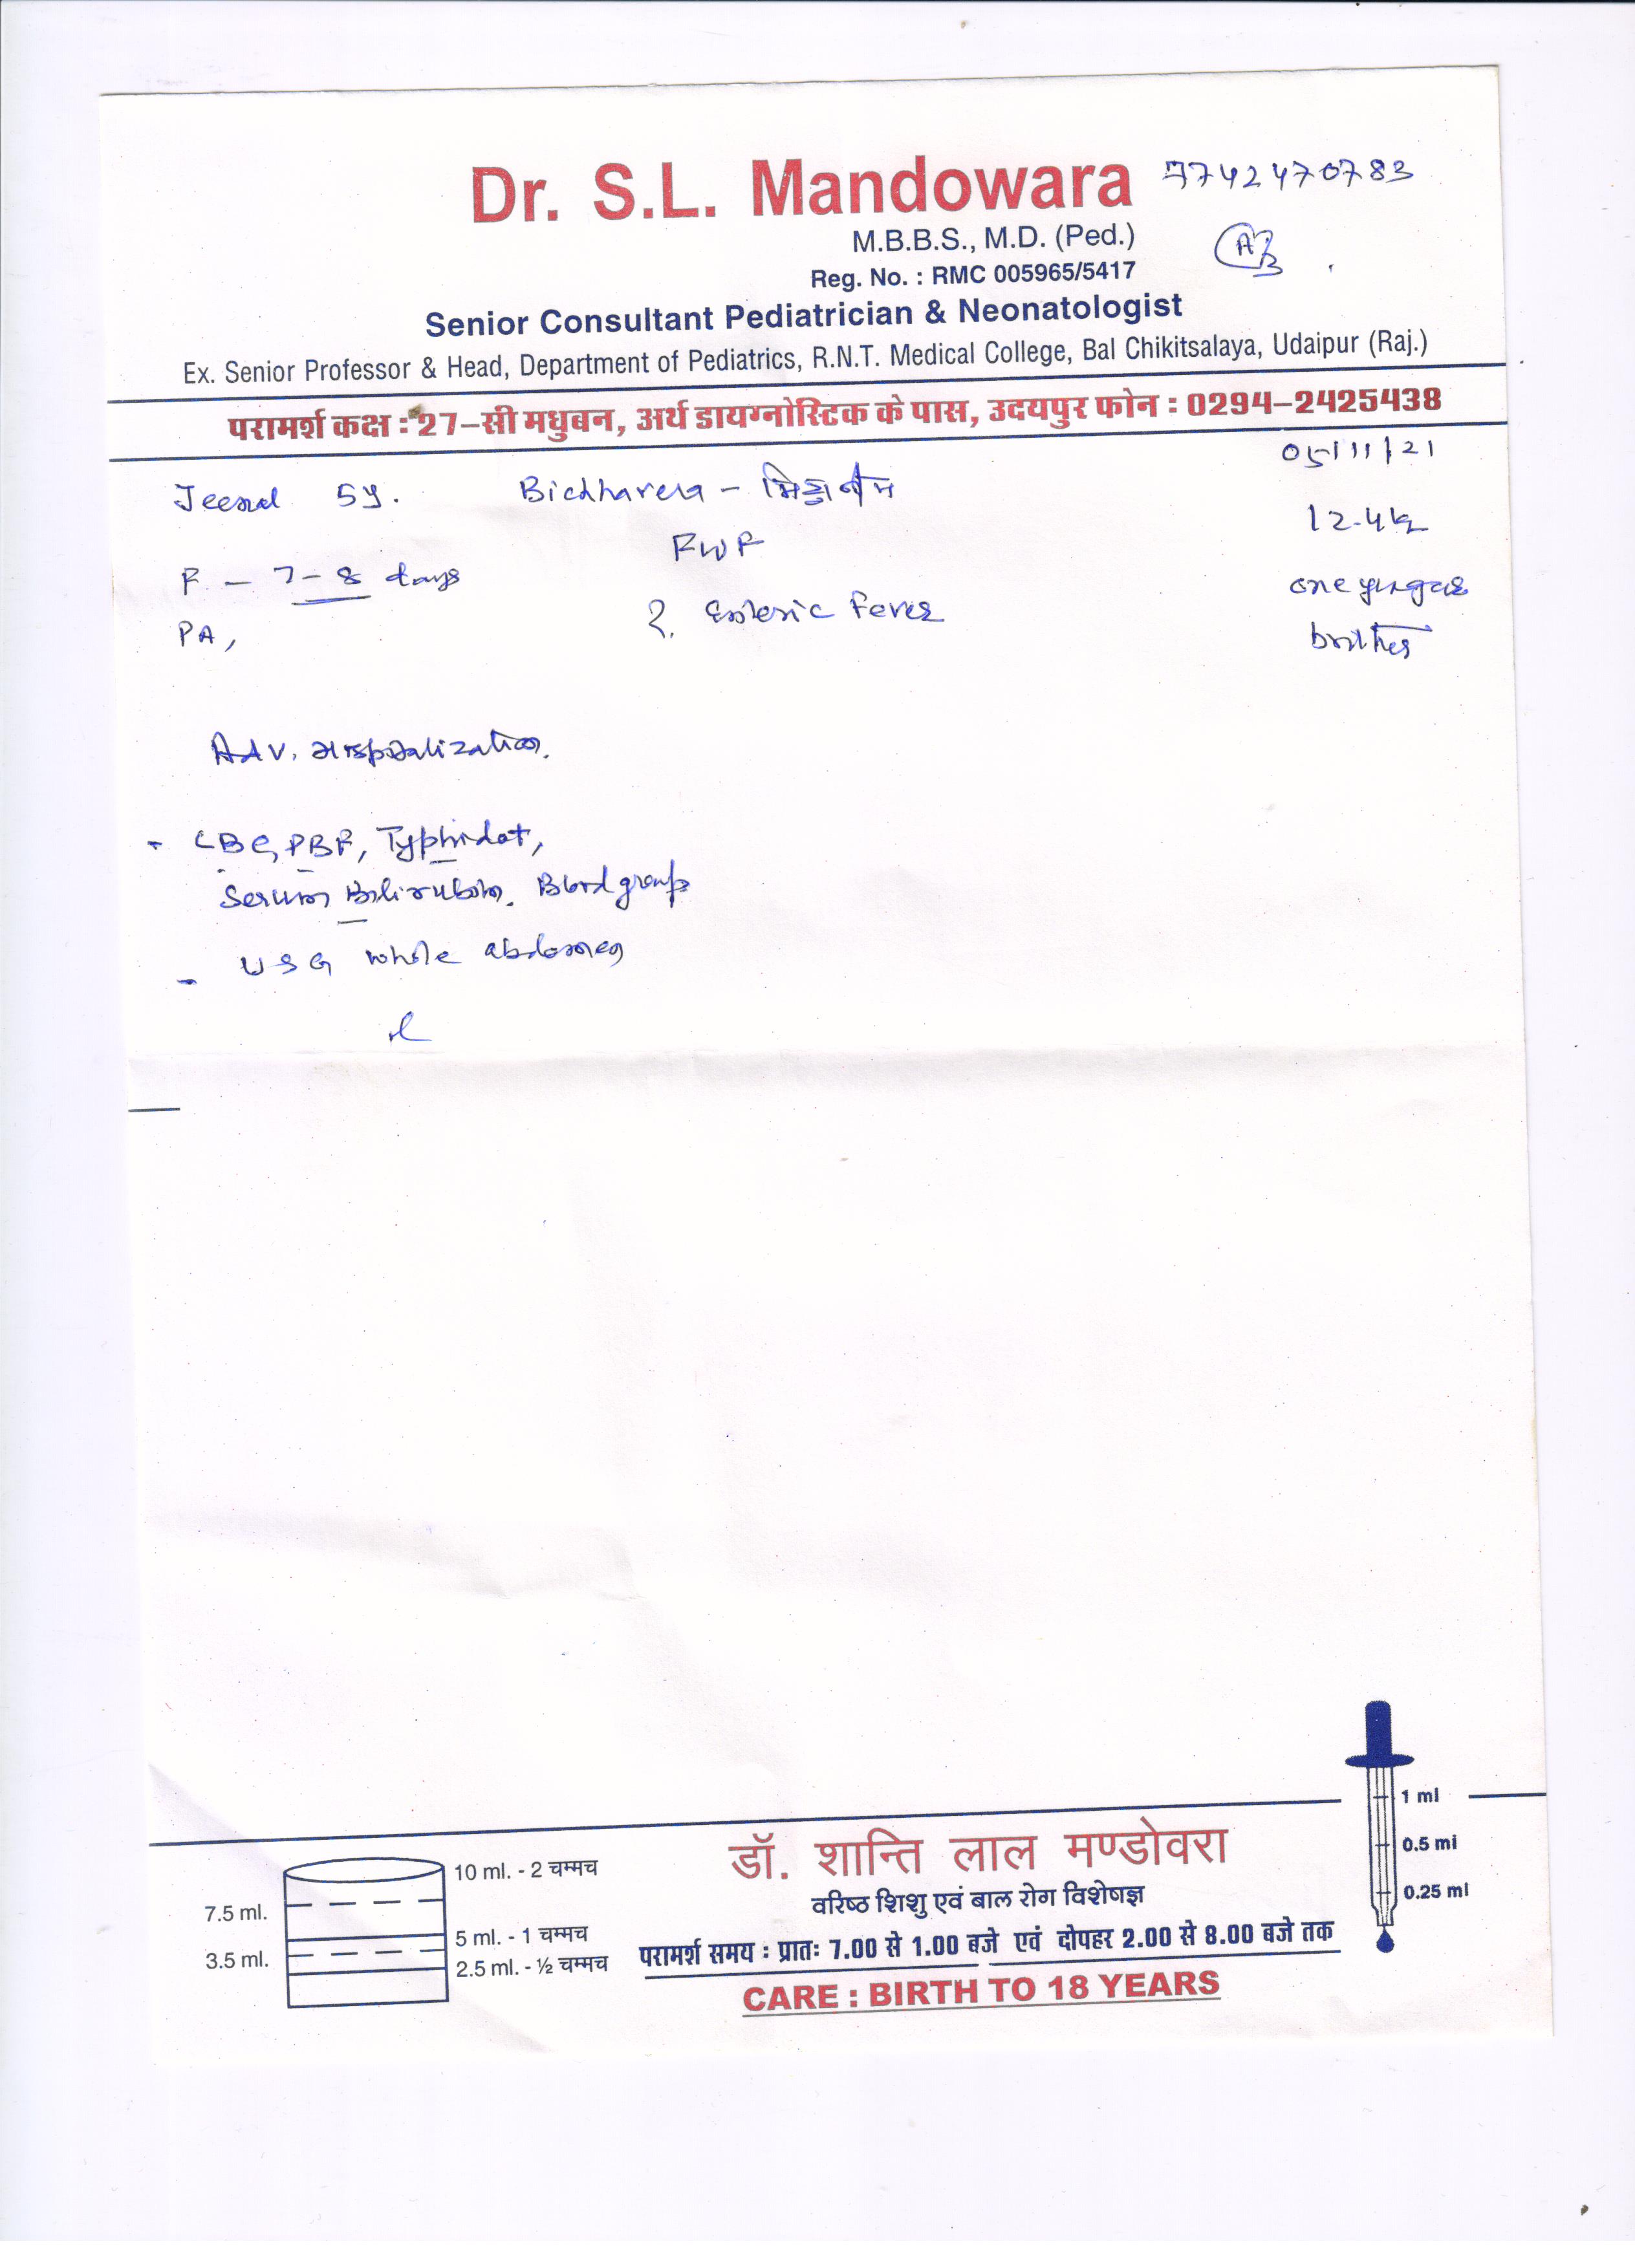 Dr. S.L. Mandowara 7742470783
M.B.B.S., M.D. (Ped.)
AB
Reg. No. : RMC 005965/5417
Senior Consultant Pediatrician & Neonatologist
Ex. Senior Professor & Head, Department of Pediatrics, R.N.T. Medical College, Bal Chikitsalaya, Udaipur (Raj.)
परामर्श कक्ष : 27–सी मधुबन, अर्थ डायग्नोस्टिक के पास, उदयपुर फोन : 0294–2425438
05/11/21
5y.
12.4k
FWF
F – 7-8 days
one younger
? Enteric Fever
PA,
brother
Adv. Hospitalization.
- CBC, PBF, Typhidot,
Serum Bilirubin. Blood group
- USG whole abdomen
1 ml
0.5 ml
0.25 ml
डॉ. शान्ति लाल मण्डोवरा
10 ml. - 2 चम्मच
वरिष्ठ शिशु एवं बाल रोग विशेषज्ञ
7.5 ml.
5 ml. - 1 चम्मच
परामर्श समय : प्रातः 7.00 से 1.00 बजे एवं दोपहर 2.00 से 8.00 बजे तक
3.5 ml.
2.5 ml. - ½ चम्मच
CARE : BIRTH TO 18 YEARS